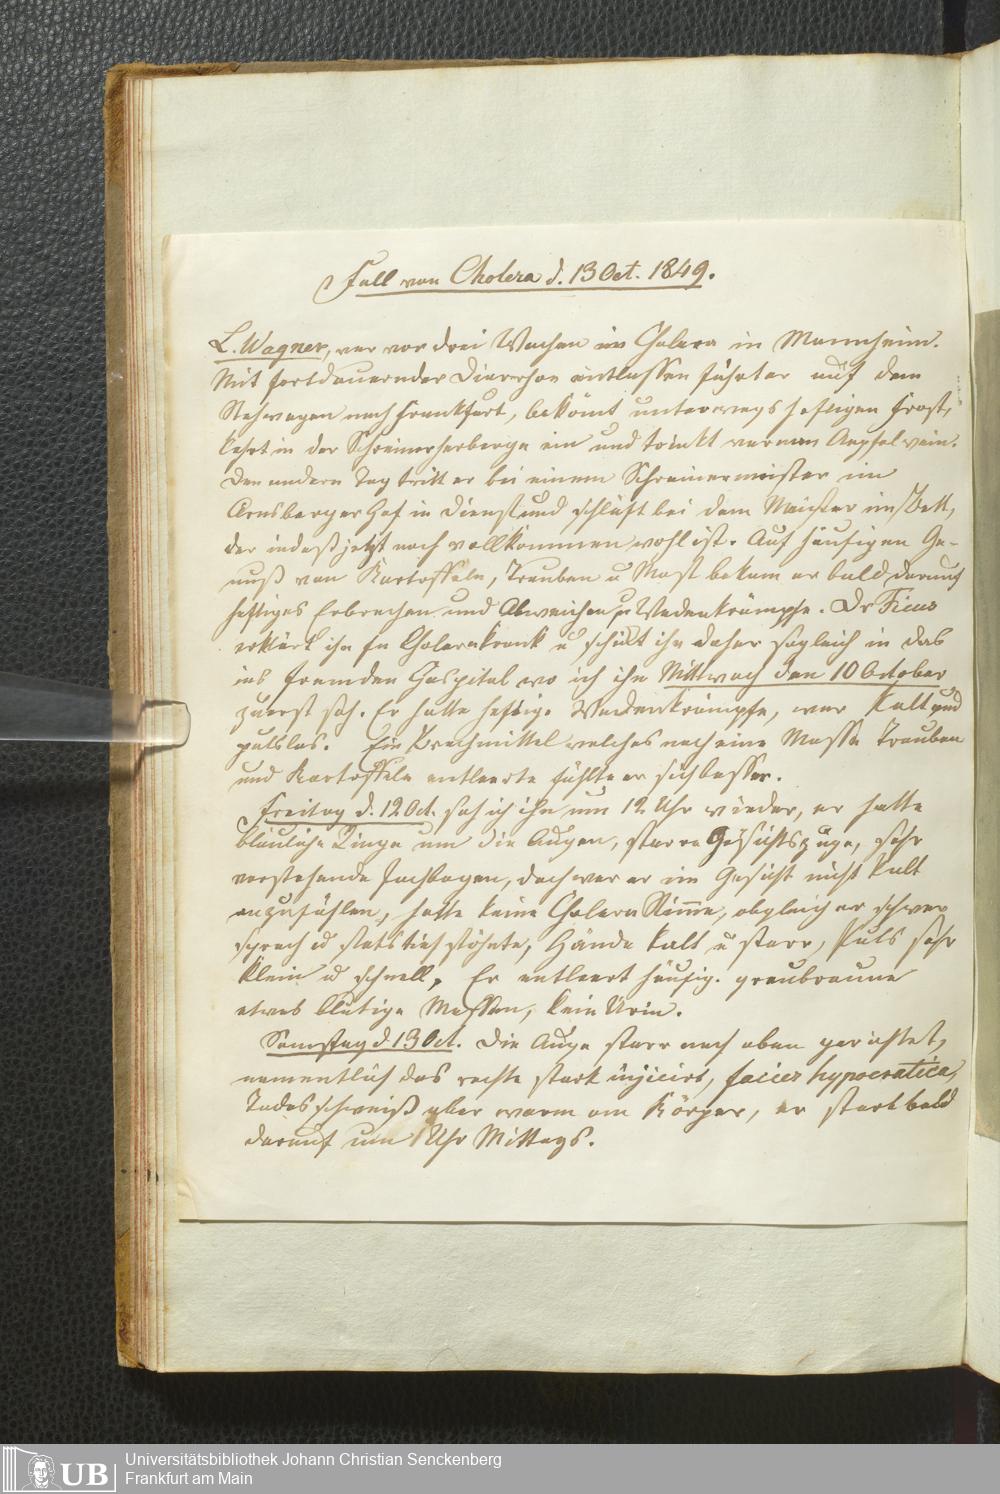 Fall von Cholera d. 13 Oct. 1849.
L. Wagner, war vor drei Wochen im Cholera in Mannheim.
Mit fortdauernder Diarrhoe entlassen fährt er auf dem
nach Frankfurt, bekömt unterwegs heftigen Frost,
kehrt in der Schreinerherberge ein und trinkt warmen Aepfelwein.
Den andern Tag tritt er bei einem Schreinermeister im
Arnsberger Hof in Dienst und schläft bei dem Meister im Bett,
der indeß jetzt noch vollkommen wohl ist. Auf häufigen Ge-
nuß von Kartoffeln, Trauben u Most bekam er bald darauf
heftiges Erbrechen und Abweichen, Wadenkrämpfe. Dr Ficus
erklärt ihn für Cholerakrank u schikt ihn daher sogleich in das
ins fremden Hospital wo ich ihn Mittwoch den 10 October
zuerst sah. Er hatte heftige Wadenkrämpfe, war kalt und
pulslos. Ein Brechmittel welches noch eine Masse Trauben
und Kartoffeln entleerte fühlte er sich besser.
Freitag d. 12 Oct. sah ich ihn um 12 Uhr wieder, er hatte
bläuliche Ringe um die Augen, starre Gesichtszüge, sehr
vorstehende Jochbogen, doch war er im Gesicht nicht kalt
anzufühlen, hatte keine Cholera Stimme, obgleich er schwer
sprach u stets tief stöhnte, Hände kalt u starr, Puls sehr
klein u schnell, Er entleert häufig graubraune
etwas blutige Massen, kein Urin.
Samstag d. 13 Oct. Die Auge starr nach oben gerichtet,
namentlich das rechte stark injicirt, facies hypocratica,
Todesschweiß aber warm am Körper, er starb bald
darauf um 1 Uhr Mittags.
UB
Universitätsbibliothek Johann Christian Senckenberg
Frankfurt am Main